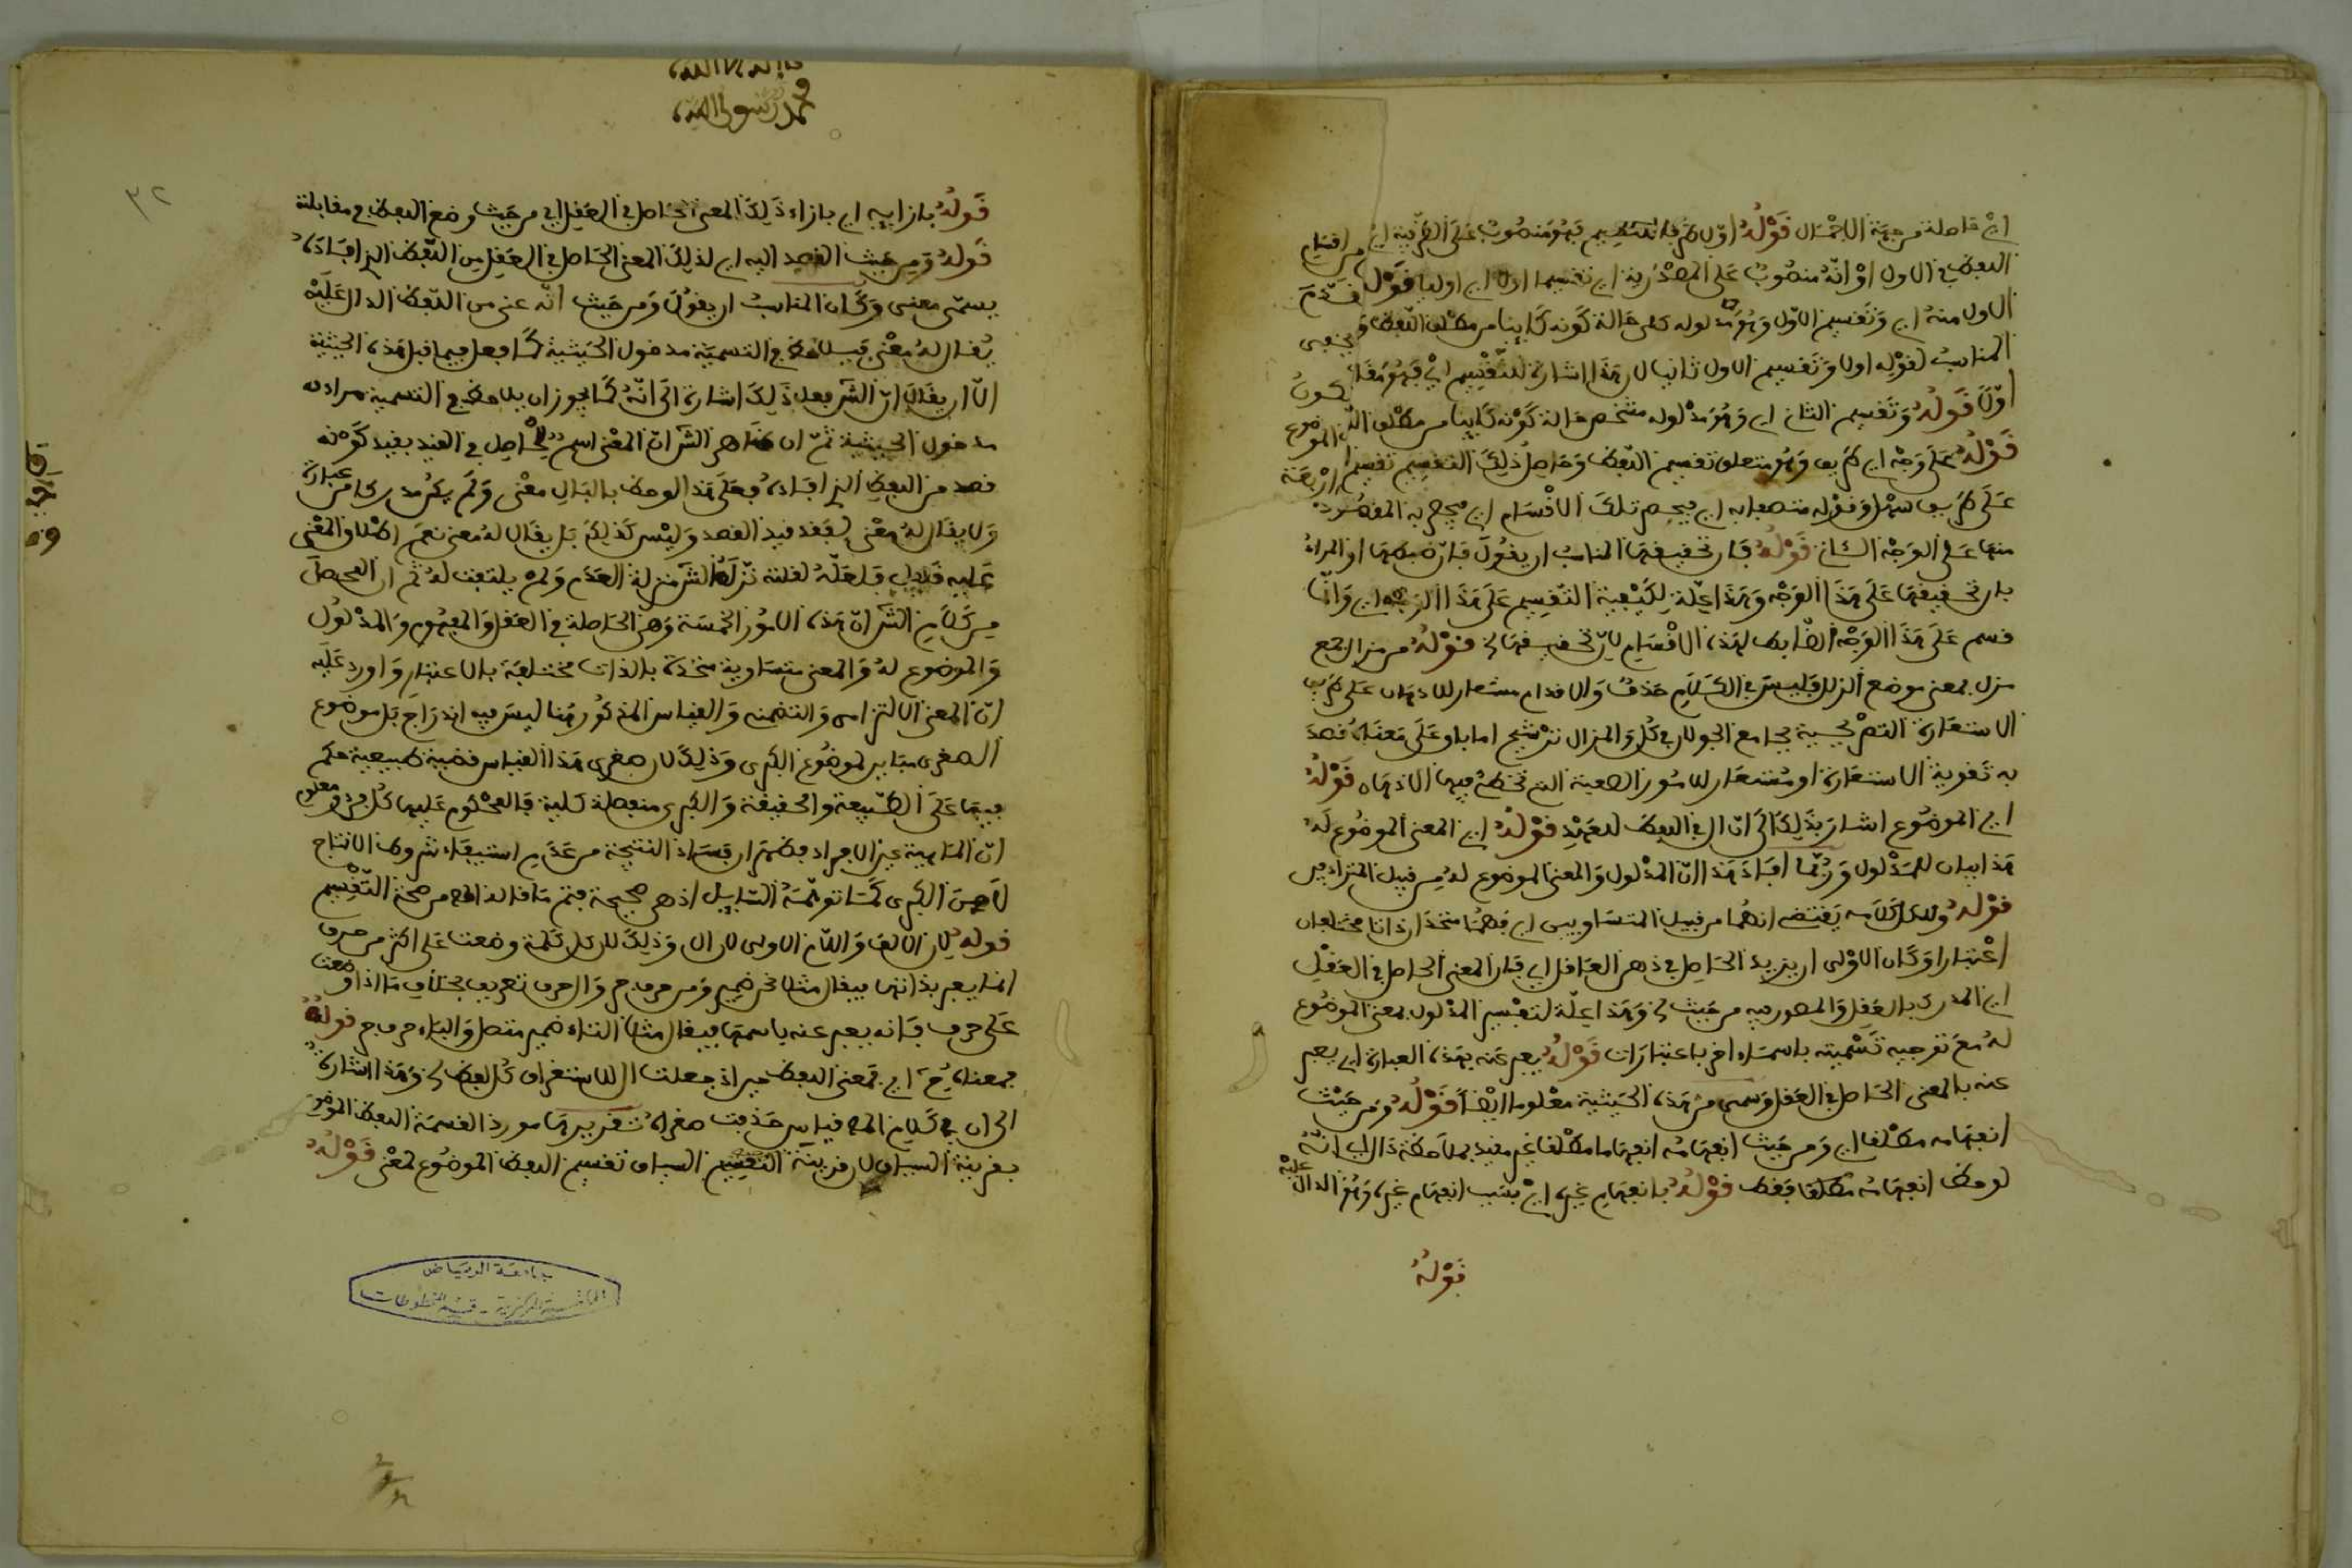 اي حاصلة من جهة الاجمال قوله اولا ظرف للتقسيم فهو منصوب على الظرفية اي من اقسام
اللفظ في الاول او انه منصوب على المصدرية اي تقسيما اولا اي اوليا قوله قدم
الاول منه اي وتقسيم الاول وهو مدلوله كلي حالة كونه كاينا من مطلق اللفظ
المناسب لقوله اولا وتقسيم الاول ثانيا لان هذا اشارة للتقسيم
اولا قوله وتقسيم الثاني اي وهو مدلوله مشخص حالة كونه كاينا من مطلق
قوله على وجه اي طريق وهو متعلق بتقسيم اللفظ وحاصل ذلك التقسيم تقسيم اربعة
على طريق وقوله منضبط به اي ينحصر تلك الاقسام اي يتضح به المقصود
منها على الوجه الثاني قوله فان تحقيقها المناسب ان يقول فان ضبطها او المراد
بان تحقيقها على هذا الوجه وهذا علة لكيفية التقسيم على هذا الوجه اي وانما
قسم على هذا الوجه الضابط لهذه الاقسام لان تحقيقها الخ قوله من مزال جمع
مزل بمعنى موضع الزلل فليس في الكلام حذف والاقدام مستعار للاذهان على طريق
الاستعارة التصريحية بجامع الجولان في كل والمزال ترشيح اما باق على معناه قصد
به تقوية الاستعارة او مستعار للامور الصعبة التي تخطئ فيها الاذهان قوله
اي الموضوع اشار بذلك الى ان ال في اللفظ للعهد قوله اي المعنى الموضوع له
هذا بيان للمدلول وربما افاد هذا ان المدلول والمعنى الموضوع له من قبيل المترادفين
قوله ولكل كلامه يقتضي انهما من قبيل المتساويين اي فهما متحدان ذاتا مختلفان
اعتبارا وكان الاولى ان يزيد الحاصل في ذهن العاقل اي فان المعنى الحاصل في العقل
اي المدرك بالعقل والمصور فيه من حيث الخ وهذا علة لتفسير المدلول بمعنى الموضوع
له مع توجيه تسميته باسماء اخر باعتبارات قوله يعبر عنه بهذه العبارة اي يعبر
عنه بالمعنى الحاصل في العقل وسمي من هذه الحيثية معلوما ايضا قوله ومن حيث
انفهامه مطلقا اي ومن حيث انفهامه انفهاما مطلقا غير مقيد بملاحظة ذلك اي انه
لوحظ انفهامه مطلقا فقط قوله بانفهام غيره اي بسبب انفهام غيره وهو الدال عليه
قوله
محمد رسول الله
٣٢
قوله بازايه اي بازاء ذلك المعنى الحاصل في العقل اي من حيث وضع اللفظ في مقابلته
قوله ومن حيث القصد اليه اي لذلك المعنى الحاصل في العقل من اللفظ الذي افاده
يسمى معنى وكان المناسب ان يقول ومن حيث انه عني من اللفظ الدال عليه
يقال له معنى فيلاحظ في التسمية مدخول الحيثية كما فعل فيما قبل هذه الحيثية
الا ان يقال ان الش فعل ذلك اشارة الى انه كما يجوز ان يلاحظ في التسمية مرادف
مدخول الحيثية ثم ان ظاهر الش ان المعنى اسم للحاصل في الفيد بقيد كونه
قصد من اللفظ الذي افاده فعلى هذا لو حظ بالبال معنى ولم يكن مدركا من عبارة
ولا يقال له معنى لفقد قيد القصد وليس كذلك بل يقال له معنى نعم اطلاق المعنى
عليه قليل فلعله لقلته نزله الش منزلة العدم ولم يلتفت له ثم ان المحصل
من كلام الش ان هذه الامور الخمسة وهي الحاصلة في العقل والمفهوم والمدلول
والموضوع له والمعنى متساوية متحدة بالذات مختلفة بالاعتبار واورد عليه
ان المعنى الالتزامي والتضمني والقياس المذكور هنا ليس فيه اندراج بل موضوع
الصغرى مباين لموضوع الكبرى وذلك لان صغرى هذا القياس قضية طبيعية حكم
فيها على الطبيعة والحقيقة والكبرى منفصلة كلية فالمحكوم عليها كل فرد ومعلوم
ان الماهية غير الافراد فظهر ان فساد النتيجة من عدم استيفاء شروط الانتاج
لا من الكبرى كما توهمه السايل اذ هي صحيحة فتم ما قاله المص من صحة التقسيم
قوله لان الالف واللام الاولى لان ال وذلك لان كل كلمة وضعت على اكثر من حرف
انما يعبر بذاتها فيقال مثلا نحن ضمير ومن حرف جر وال حرف تعريف بخلاف ما اذا وضعت
على حرف فانه يعبر عنه باسمها فيقال مثلا التاء ضمير متصل والباء حرف جر قوله
بمعناه يح اي بمعنى اللفظ حين اذ جعلت ال للاستغراق كل لفظ الخ وهذا اشارة
الى ان في كلام المص قياس حذفت صغراه تقريرها مورد القسمة اللفظ الموضوع
بقرينة السياق لان قرينة التقسيم السياق تقسيم اللفظ الموضوع لمعنى قوله
جامعة الرياض
المكتبة المركزية - قسم المخطوطات